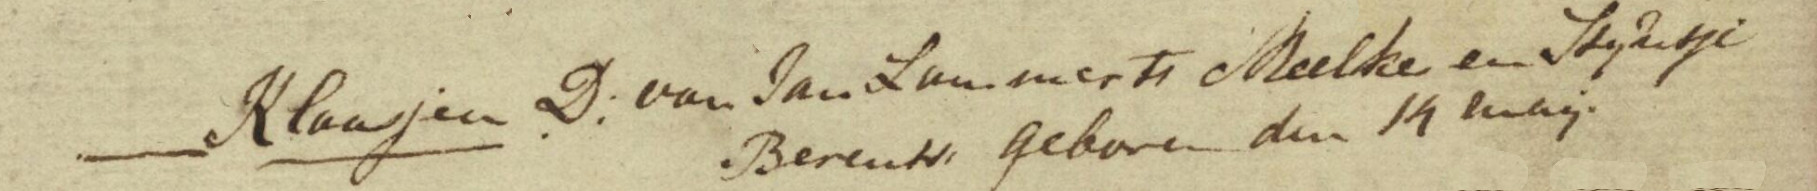 Klaasjen D: van Jan Lammerts Meelker en Styntje
Berents. geboren den 14 maij.